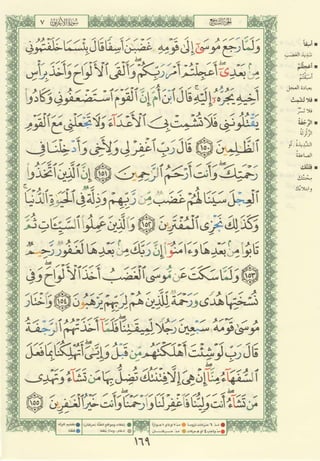 ٧ سُورَةُ الأَعْرَافِ
الجُزْءُ التَّاسِعُ
وَلَمَّا رَجَعَ مُوسَىٰٓ إِلَىٰ قَوْمِهِۦ غَضْبَٰنَ أَسِفًا قَالَ بِئْسَمَا خَلَفْتُمُونِى
مِنۢ بَعْدِىٓ أَعَجِلْتُمْ أَمْرَ رَبِّكُمْ وَأَلْقَى ٱلْأَلْوَاحَ وَأَخَذَ بِرَأْسِ
أَخِيهِ يَجُرُّهُۥٓ إِلَيْهِ قَالَ ٱبْنَ أُمَّ إِنَّ ٱلْقَوْمَ ٱسْتَضْعَفُونِى وَكَادُوا۟
يَقْتُلُونَنِى فَلَا تُشْمِتْ بِىَ ٱلْأَعْدَآءَ وَلَا تَجْعَلْنِى مَعَ ٱلْقَوْمِ
ٱلظَّٰلِمِينَ ١٥٠ قَالَ رَبِّ ٱغْفِرْ لِى وَلِأَخِى وَأَدْخِلْنَا فِى
رَحْمَتِكَ وَأَنتَ أَرْحَمُ ٱلرَّٰحِمِينَ ١٥١ إِنَّ ٱلَّذِينَ ٱتَّخَذُوا۟
ٱلْعِجْلَ سَيَنَالُهُمْ غَضَبٌ مِّن رَّبِّهِمْ وَذِلَّةٌ فِى ٱلْحَيَوٰةِ ٱلدُّنْيَا
وَكَذَٰلِكَ نَجْزِى ٱلْمُفْتَرِينَ ١٥٢ وَٱلَّذِينَ عَمِلُوا۟ ٱلسَّيِّـَٔاتِ ثُمَّ
تَابُوا۟ مِنۢ بَعْدِهَا وَءَامَنُوٓا۟ إِنَّ رَبَّكَ مِنۢ بَعْدِهَا لَغَفُورٌ رَّحِيمٌ
١٥٣ وَلَمَّا سَكَتَ عَن مُّوسَى ٱلْغَضَبُ أَخَذَ ٱلْأَلْوَاحَ وَفِى
نُسْخَتِهَا هُدًى وَرَحْمَةٌ لِّلَّذِينَ هُمْ لِرَبِّهِمْ يَرْهَبُونَ ١٥٤ وَٱخْتَارَ
مُوسَىٰ قَوْمَهُۥ سَبْعِينَ رَجُلًا لِّمِيقَٰتِنَا فَلَمَّآ أَخَذَتْهُمُ ٱلرَّجْفَةُ
قَالَ رَبِّ لَوْ شِئْتَ أَهْلَكْتَهُم مِّن قَبْلُ وَإِيَّٰىَ أَتُهْلِكُنَا بِمَا فَعَلَ
ٱلسُّفَهَآءُ مِنَّآ إِنْ هِىَ إِلَّا فِتْنَتُكَ تُضِلُّ بِهَا مَن تَشَآءُ وَتَهْدِى
مَن تَشَآءُ أَنتَ وَلِيُّنَا فَٱغْفِرْ لَنَا وَٱرْحَمْنَا وَأَنتَ خَيْرُ ٱلْغَٰفِرِينَ ١٥٥
١٦٩
أَسِفًا
شَدِيدَ الغَضَبِ
أَعَجِلْتُمْ